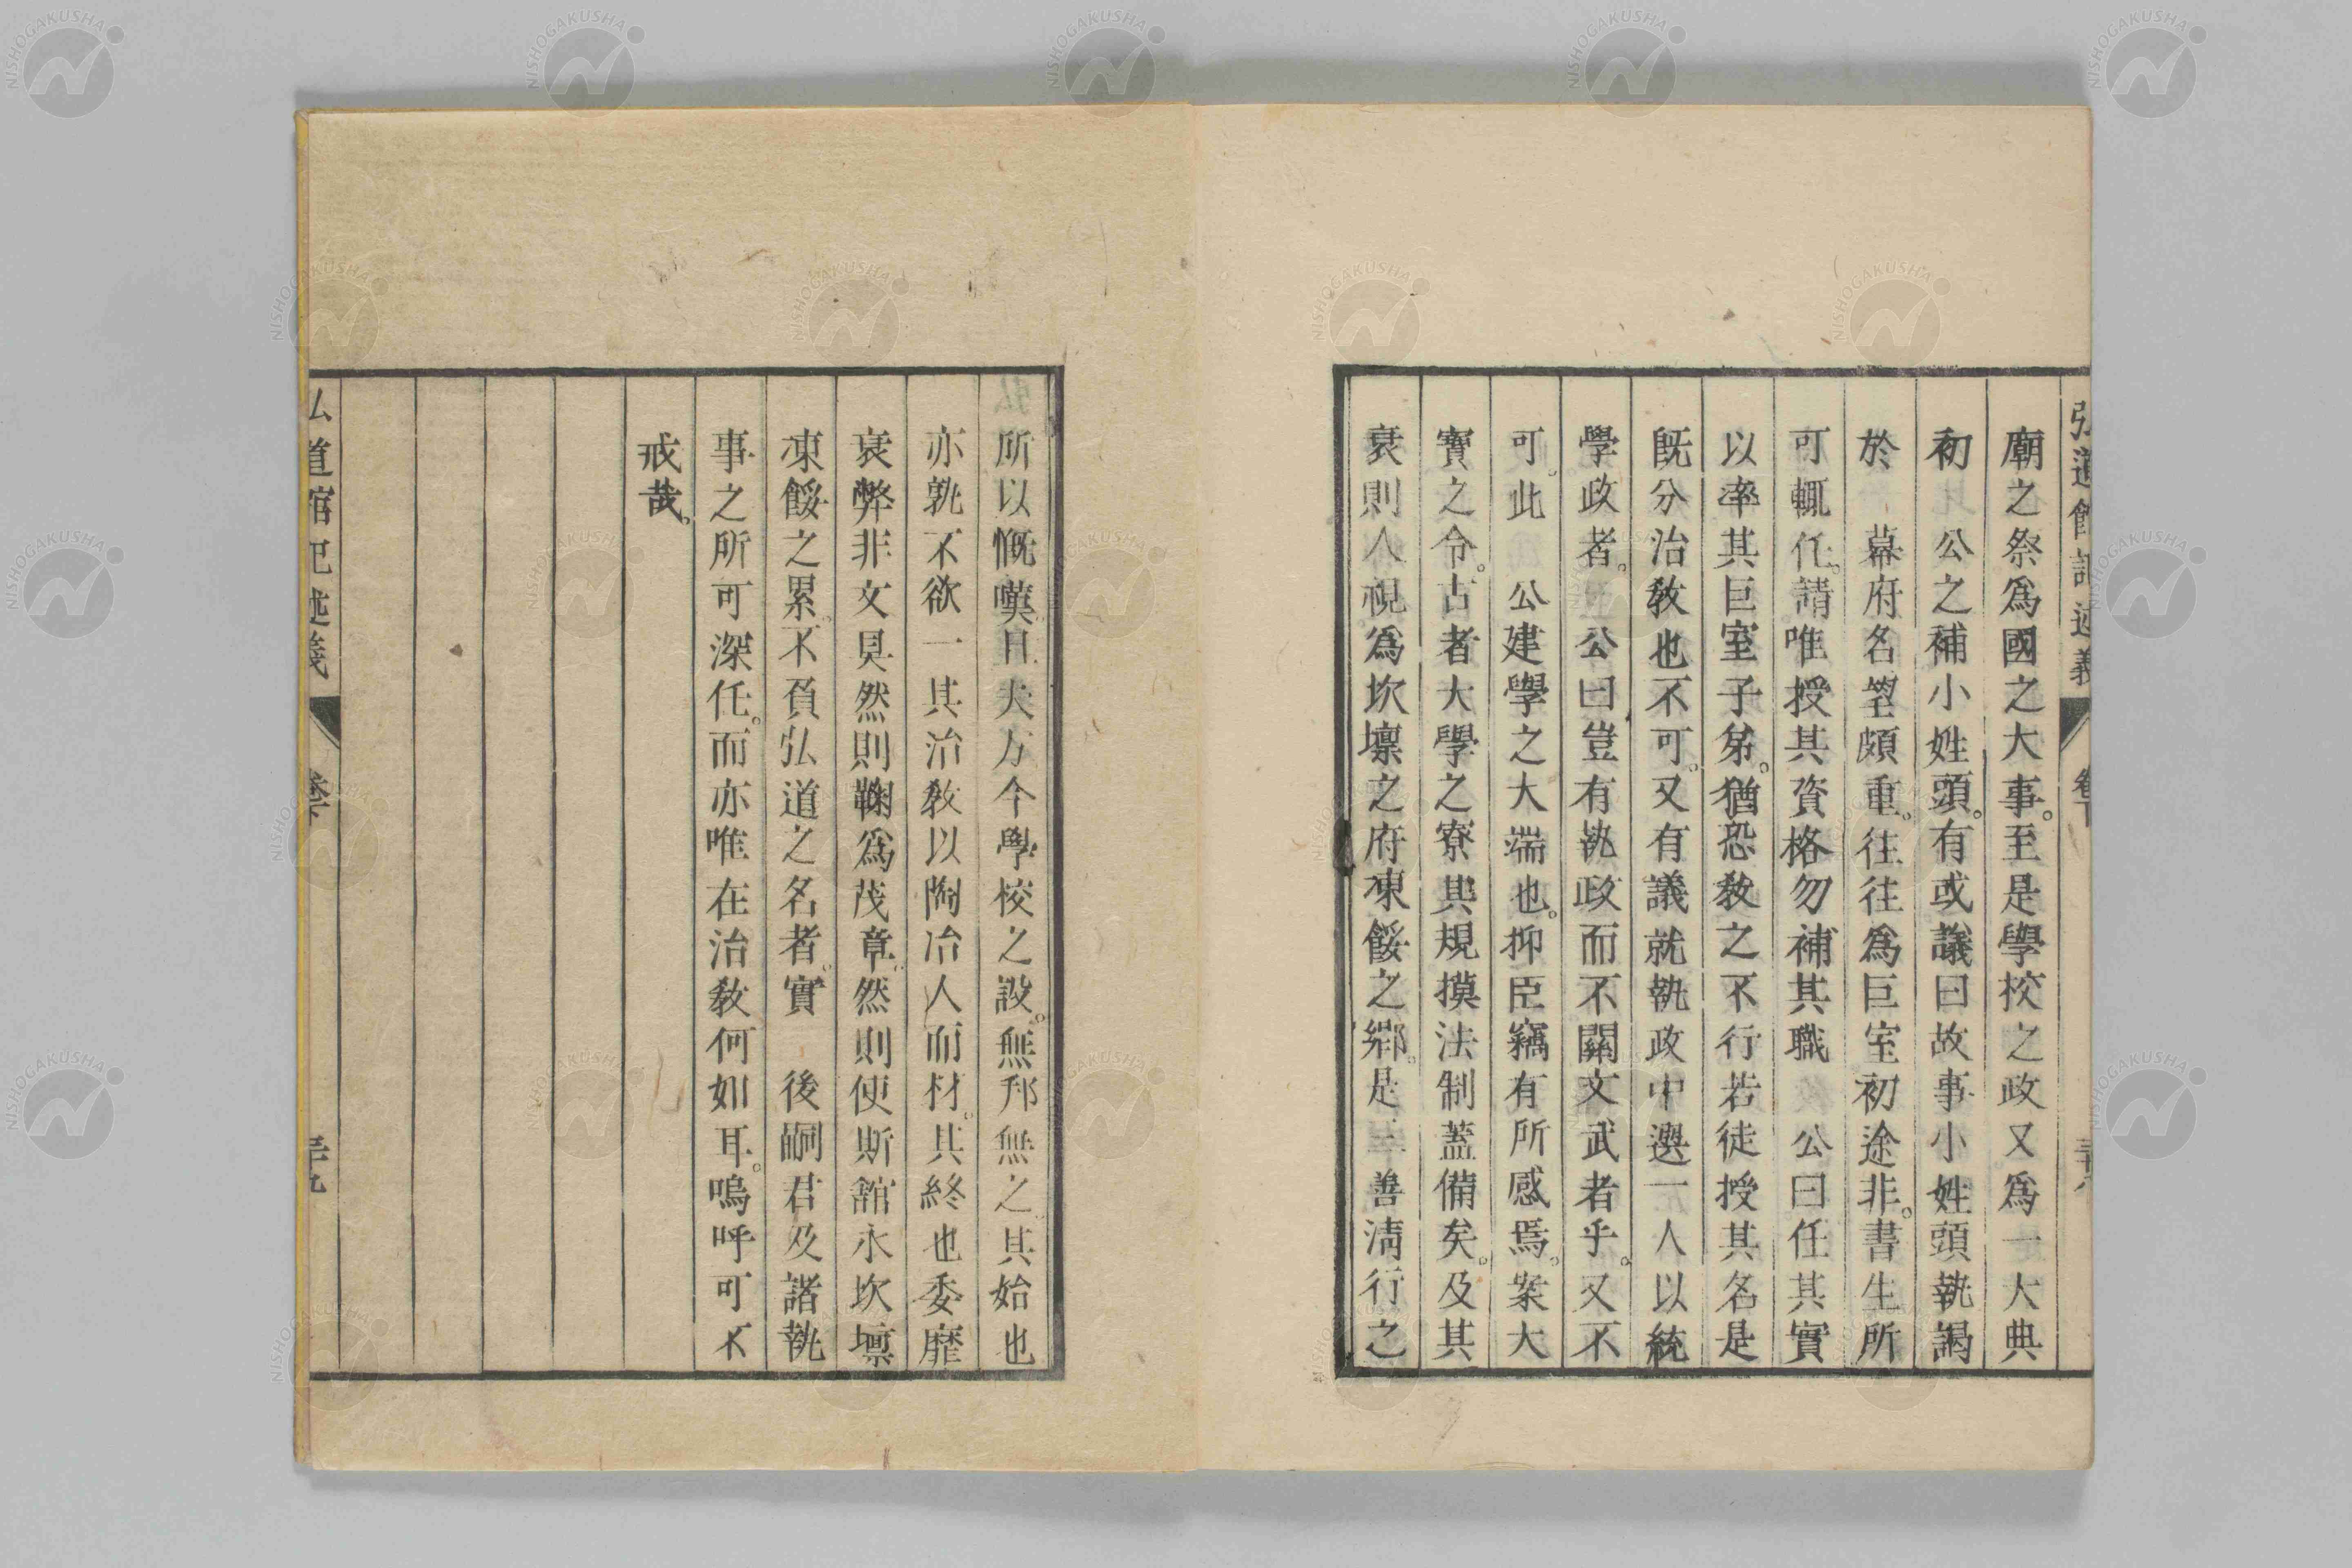 弘道館記述義 卷下
廟之祭爲國之大事。至是學校之政又爲一大典
初 公之補小姓頭。有或議曰故事小姓頭執謁
於 幕府名望頗重。往往爲巨室初途非。書生所
可輒任。請唯授其資格勿補其職 公曰任其實
以率其巨室子弟。猶恐教之不行若徒授其名是
既分治教也不可。又有議就執政中選一人以統
學政者。 公曰豈有執政而不關文武者乎。又不
可。此 公建學之大端也。抑臣竊有所感焉。案大
寶之令。古者大學之寮其規摸法制蓋備矣。及其
衰則人視爲坎壈之府凍餒之鄕。是三善淸行之
所以慨嘆。且夫方今學校之設。無邦無之。其始也
亦孰不欲一其治教以陶冶人而材。其終也委靡
衰弊非文具然則鞠爲茂草。然則使斯館永坎壈
凍餒之累。不負弘道之名者。實 後嗣君及諸執
事之所可深任。而亦唯在治教何如耳。嗚呼可不
戒哉。
弘道館記述義 卷下 三十九
NISHOGAKUSHA